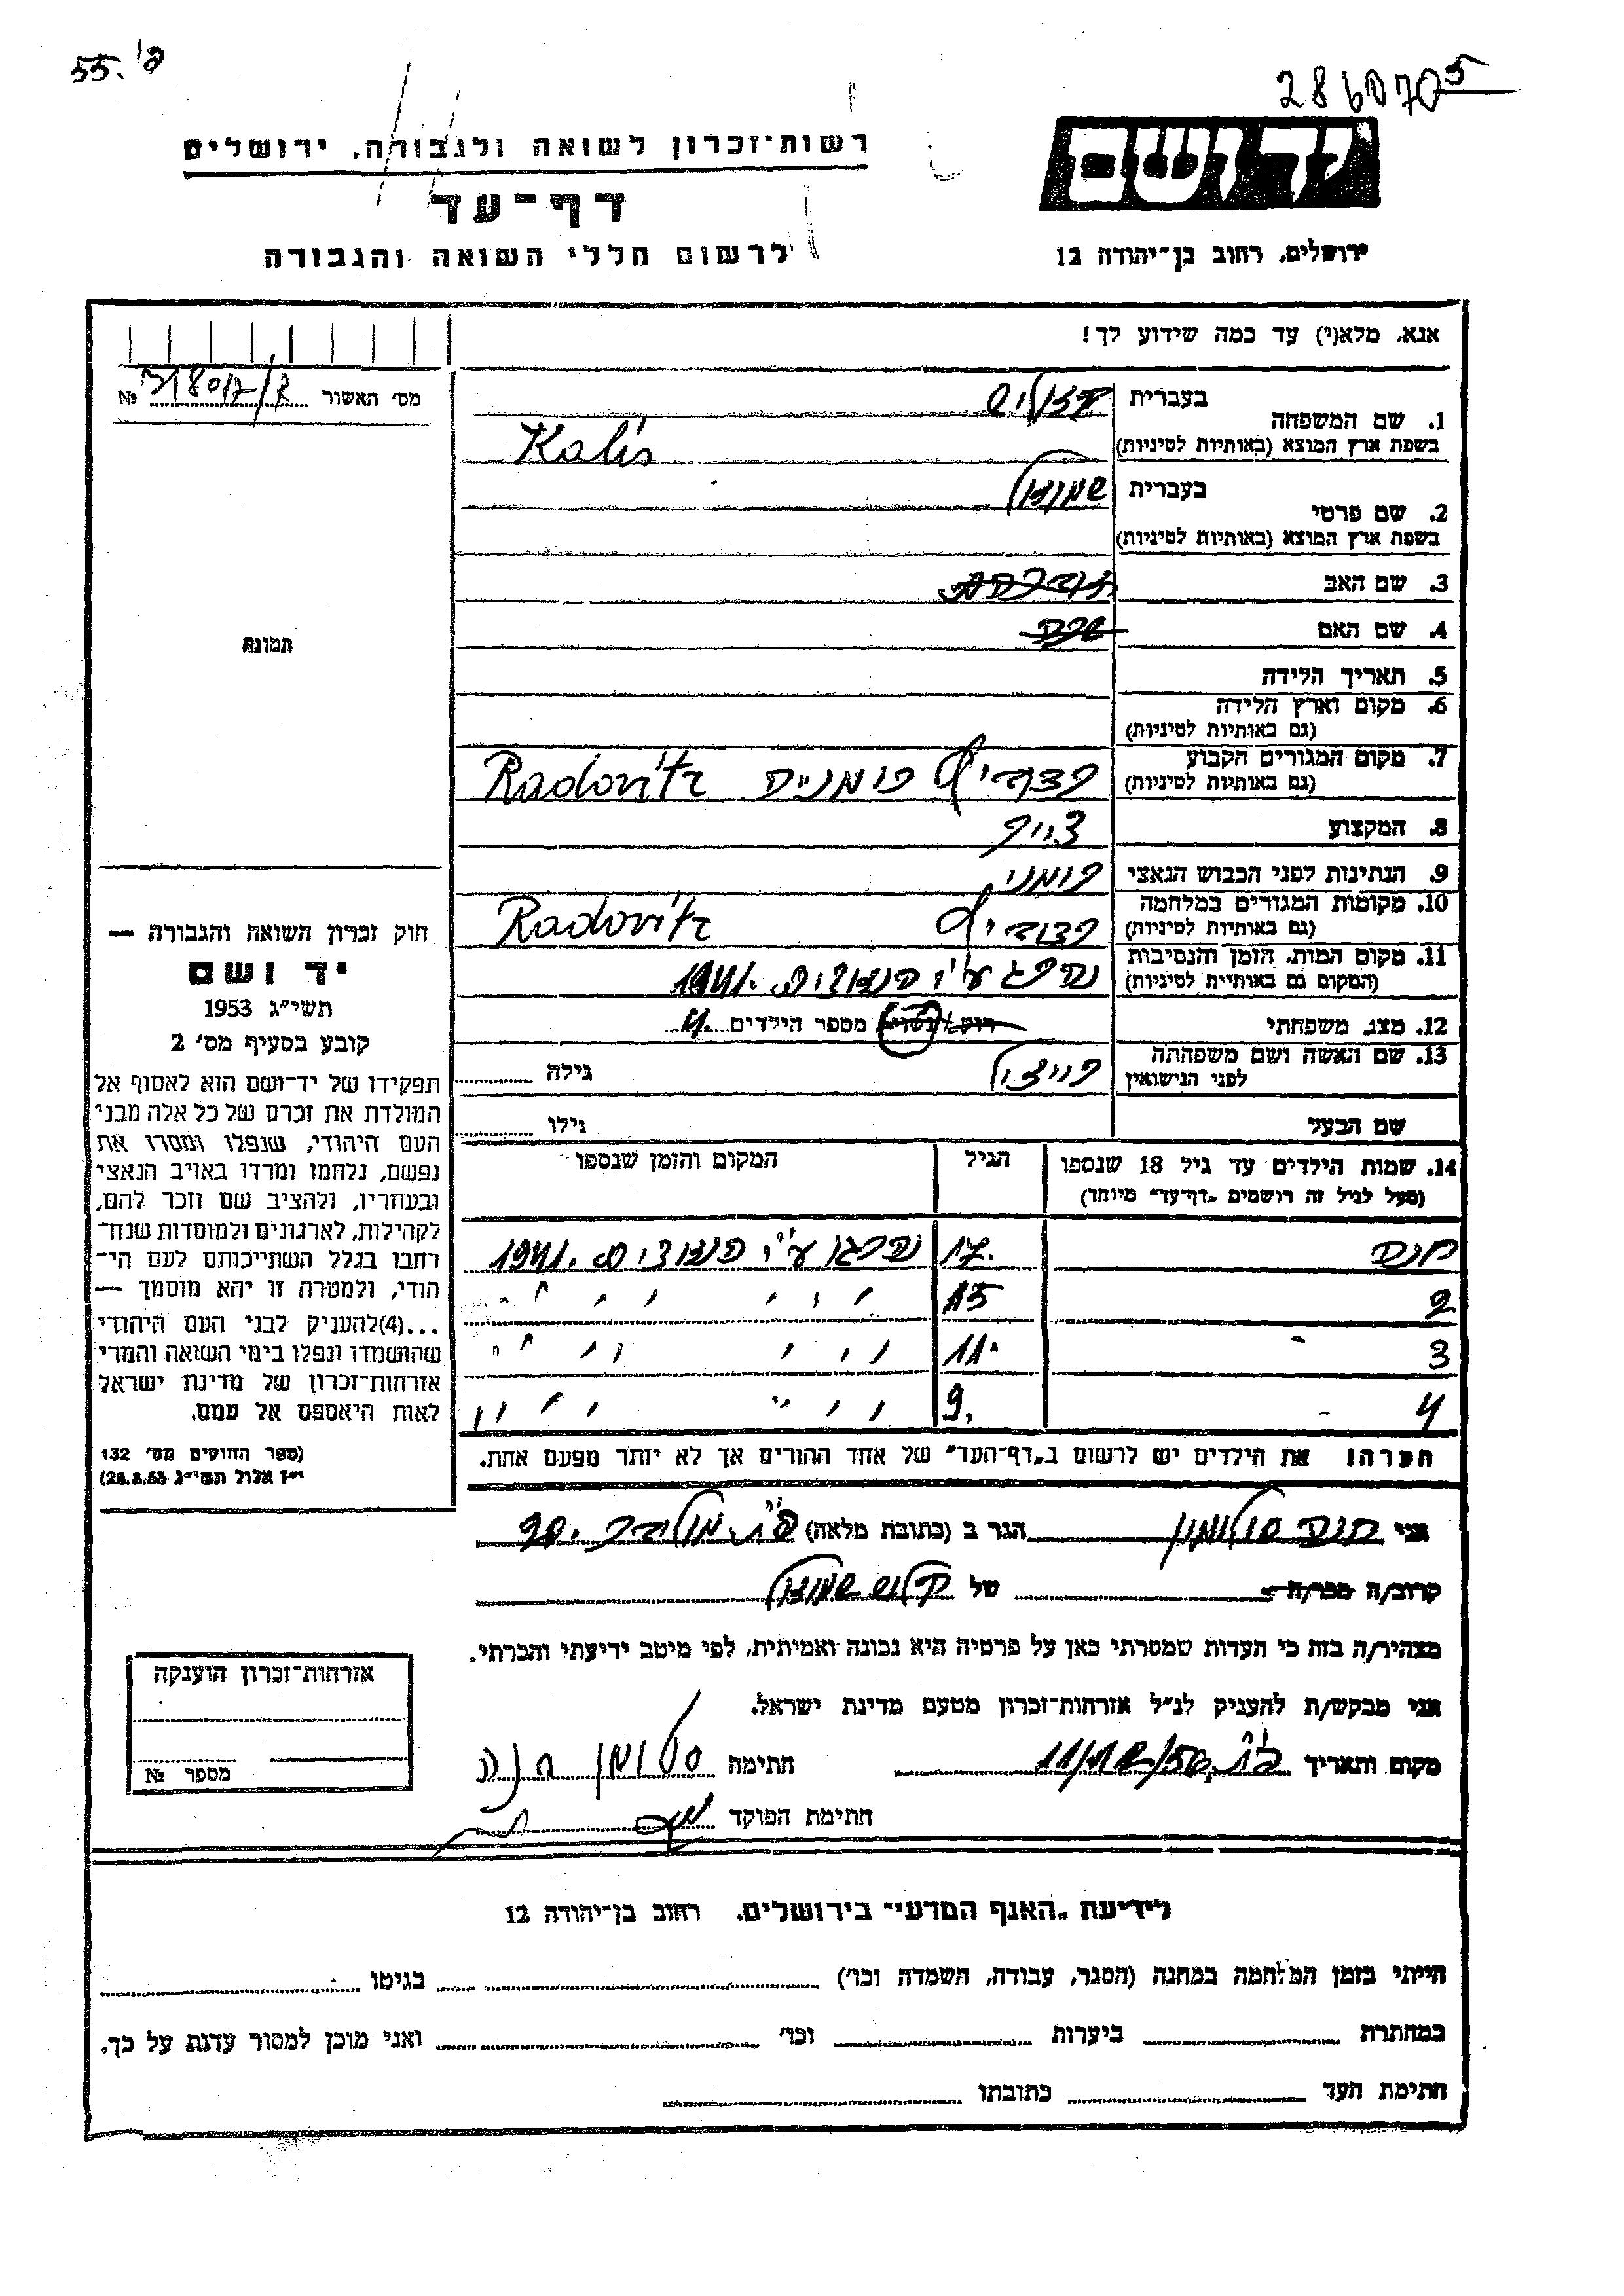 55.
286070 5
רשות־זכרון לשואה ולגבורה, ירושלים
יד ושם
דף־עד
לרשום חללי השואה והגבורה
ירושלים, רחוב בן־יהודה 12
אנא, מלא(י) עד כמה שידוע לך!
מס' האשור № 318012/7
1. שם המשפחה
בעברית
בשפת ארץ המוצא (באותיות לטיניות) Kalis
2. שם פרטי
בעברית שמואל
בשפת ארץ המוצא (באותיות לטיניות)
3. שם האב אברהם
4. שם האם שרה
תמונה
5. תאריך הלידה
6. מקום וארץ הלידה
(גם באותיות לטיניות)
7. מקום המגורים הקבוע רומניה Radovitz
(גם באותיות לטיניות)
8. המקצוע
9. הנתינות לפני הכבוש הנאצי רומני
10. מקומות המגורים במלחמה Radovitz
(גם באותיות לטיניות)
11. מקום המות, הזמן והנסיבות נהרג ע"י הנאצים 1941.
(המקום גם באותיית לטיניות)
12. מצב משפחתי רוק/נשוי מספר הילדים 4
13. שם האשה ושם משפחתה רייזל גילה
לפני הנישואין
שם הבעל גילו
14. שמות הילדים עד גיל 18 שנספו הגיל המקום והזמן שנספו
(מעל לגיל זה רושמים "דף־עד" מיוחד)
17. נהרגו ע"י הנאצים 1941.
2 15 " " " "
3 11. " " " "
4 9. " " " "
הערה! את הילדים יש לרשום ב"דף־העד" של אחד ההורים אך לא יותר מפעם אחת.
חוק זכרון השואה והגבורה —
יד ושם
תשי"ג 1953
קובע בסעיף מס' 2
תפקידו של יד־ושם הוא לאסוף אל
המולדת את זכרם של כל אלה מבני
העם היהודי, שנפלו ומסרו את
נפשם, נלחמו ומרדו באויב הנאצי
ובעוזריו, ולהציב שם וזכר להם,
לקהילות, לארגונים ולמוסדות שנח־
רחבו בגלל השתייכותם לעם הי־
הודי, ולמטרה זו יהא מוסמך —
...(4)להעניק לבני העם היהודי
שהושמדו ונפלו בימי השואה והמרי
אזרחות־זכרון של מדינת ישראל
לאות היאספם אל עמם.
(ספר החוקים מס' 132
י"ז אלול תשי"ג 28.8.53)
אני חנה סולומון הגר ב (כתובת מלאה)
קרוב/ה מכר/ה של קליש שמואל
מצהיר/ה בזה כי העדות שמסרתי כאן על פרטיה היא נכונה ואמיתית, לפי מיטב ידיעתי והכרתי.
אני מבקש/ת להעניק לנ"ל אזרחות־זכרון מטעם מדינת ישראל.
מקום ותאריך חתימה סלומון חנה
חתימת הפוקד
אזרחות־זכרון הוענקה
מספר №
לידיעת "האגף המדעי" בירושלים, רחוב בן־יהודה 12
הייתי בזמן המלחמה במחנה (הסגר, עבודה, השמדה וכו') בגיטו
במחתרת ביערות וכו' ואני מוכן למסור עדות על כך.
חתימת העד כתובתו